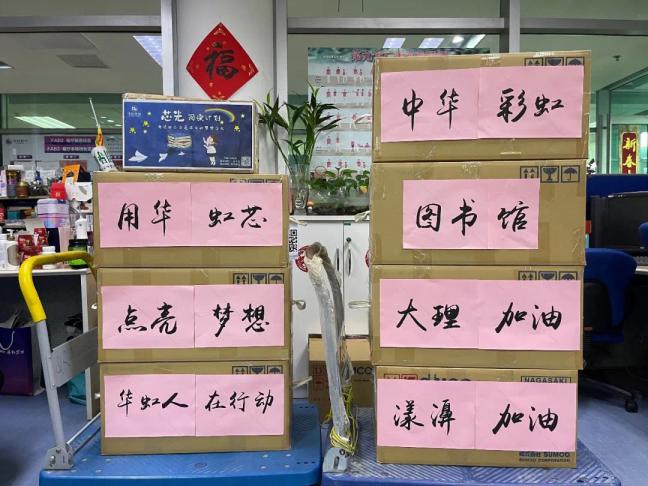 福
芯光 阅读计划
用华 虹芯
点亮 梦想
华虹人 在行动
中华 彩虹
图书 馆
大理 加油
漾濞 加油
NAGASAKI
株式会社 SUMCO
SUMCO CORPORATION
新春